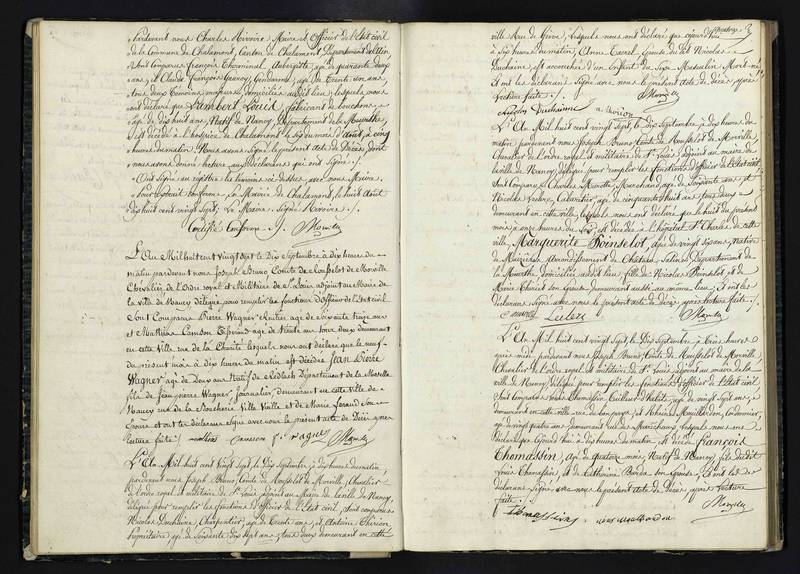 Pardevant nous Charles Mirvire Maire et Officier de l'Etat civil
de la Commune de Chalamont, Canton de Chalamont, Département de l'Ain
Sont Comparus François Chominal Aubergiste, agé de quarante deux
ans, et Claude François Gauvoy Gendarme, agé de trente un ans,
tous deux témoins majeurs domiciliés audit lieu, lesquels nous
ont déclaré que Lambert Louis, fabricant de bouchons,
agé de dix huit ans, Natif de Nancy, Département de la Meurthe,
est décédé à l'hospice de Chalamont le six mois d'août, à cinq
heures du matin. Nous avons signé le présent acte de Décès, dont
nous avons donné lecture aux déclarans qui ont signé
Ont signé au registre les témoins ci-dessus avec nous Maire
Pour extrait conforme. La Mairie de Chalamont, le huit août
dix huit cent vingt sept; Le Maire. Signé
Certifié conforme
L'An Mil huit cent vingt sept le Dix Septembre à dix heures du
matin pardevant nous Joseph Bruno, Comte de Rousselot de Morville
Chevalier, de l'Ordre royal et Militaire de St Louis adjoint au Maire de
la ville de Nancy délégué pour remplir les fonctions d'Officier de l'Etat civil
Sont Comparus Pierre Wagner Rentier agé de soixante treize ans
et Mathias agé de trente ans tous deux demeurant
en cette ville rue de la Charité lesquels nous ont déclaré que le neuf
du présent mois à dix heures du matin est décédé Jean Pierre
Wagner agé de Deux ans natif de Redlach Département de la Moselle
fils de Jean pierre Wagner, Journalier, demeurant en cette ville de
Nancy rue de la Boucherie Ville Vieille et de Marie son
épouse et ont les déclarans signé avec nous le présent acte de Décès après
lecture faite
L'An Mil huit cent Vingt Sept, le Dix Septembre à dix heures du matin,
pardevant nous Joseph Bruno, Comte de Rousselot de Morville, Chevalier
de l'ordre royal et militaire de St Louis, adjoint au Maire de la ville de Nancy,
délégué pour remplir les fonctions d'Officier de l'Etat civil, sont comparus
Nicolas Duchaine, Charpentier, agé de trente ans, et Antoine Thirion
propriétaire agé de soixante dix sept ans, tous deux demeurant en cette
ville Rue de Grève, lesquels nous ont déclaré que cejourd'hui
à Six heures du matin, Anne Tavel Epouse du dit Nicolas
Duchaine, est accouchée d'un Enfant du Sexe Masculin Mort-né
Et ont les déclarans Signé avec nous le présent acte de Décès, après
lecture faite
Nicolas Duchainne A thirion
L'An Mil huit cent vingt sept, le Dix Septembre à dix heures du
matin pardevant nous Joseph Bruno, Comte de Rousselot de Morville,
Chevalier de l'ordre royal et militaire de St Louis, adjoint au maire de
la ville de Nancy, délégué pour remplir les fonctions d'Officier de l'Etat civil
Sont Comparus Charles Marchand, agé de Soixante ans, et
Nicolas Leclerc, Cabaretier, agé de cinquante huit ans, tous deux
demeurant en cette ville, lesquels nous ont déclaré que le huit du présent
mois à onze heures du soir est décédée à l'hôpital St Charles de cette
ville, Marguerite Poinselot, agée de vingt six ans, native
de Maizières Arrondissement de Château, Salins Département de
la Meurthe domiciliée audit lieu, fille de Nicolas Poinselot, et de
Marie son Epouse demeurant aussi au même lieu. Et ont les
déclarans Signé avec nous le présent acte de décès, après lecture faite
Leclerc
L'An Mil huit cent vingt Sept, le Dix Septembre à trois heures
après midi pardevant nous Joseph Bruno, Comte de Rousselot de Morville,
Chevalier de l'ordre royal et militaire de St Louis, adjoint au maire de la
ville de Nancy, délégué pour remplir les fonctions d'Officier de l'Etat civil
Sont comparus Louis Thomassin, Tailleur d'habits, agé de vingt sept ans,
demeurant en cette ville rue de et Nicolas Cordonnier,
agé de vingt quatre ans demeurant rue des Maréchaux, lesquels nous ont
déclaré que cejourd'hui à dix heures du matin, est décédé François
Thomassin, agé de quatre mois, Natif de Nancy, fils du dit
Louis Thomassin et de Catherine son Epouse, Et ont les
déclarans Signé, avec nous le présent acte de Décès après Lecture
faite
Thomassin